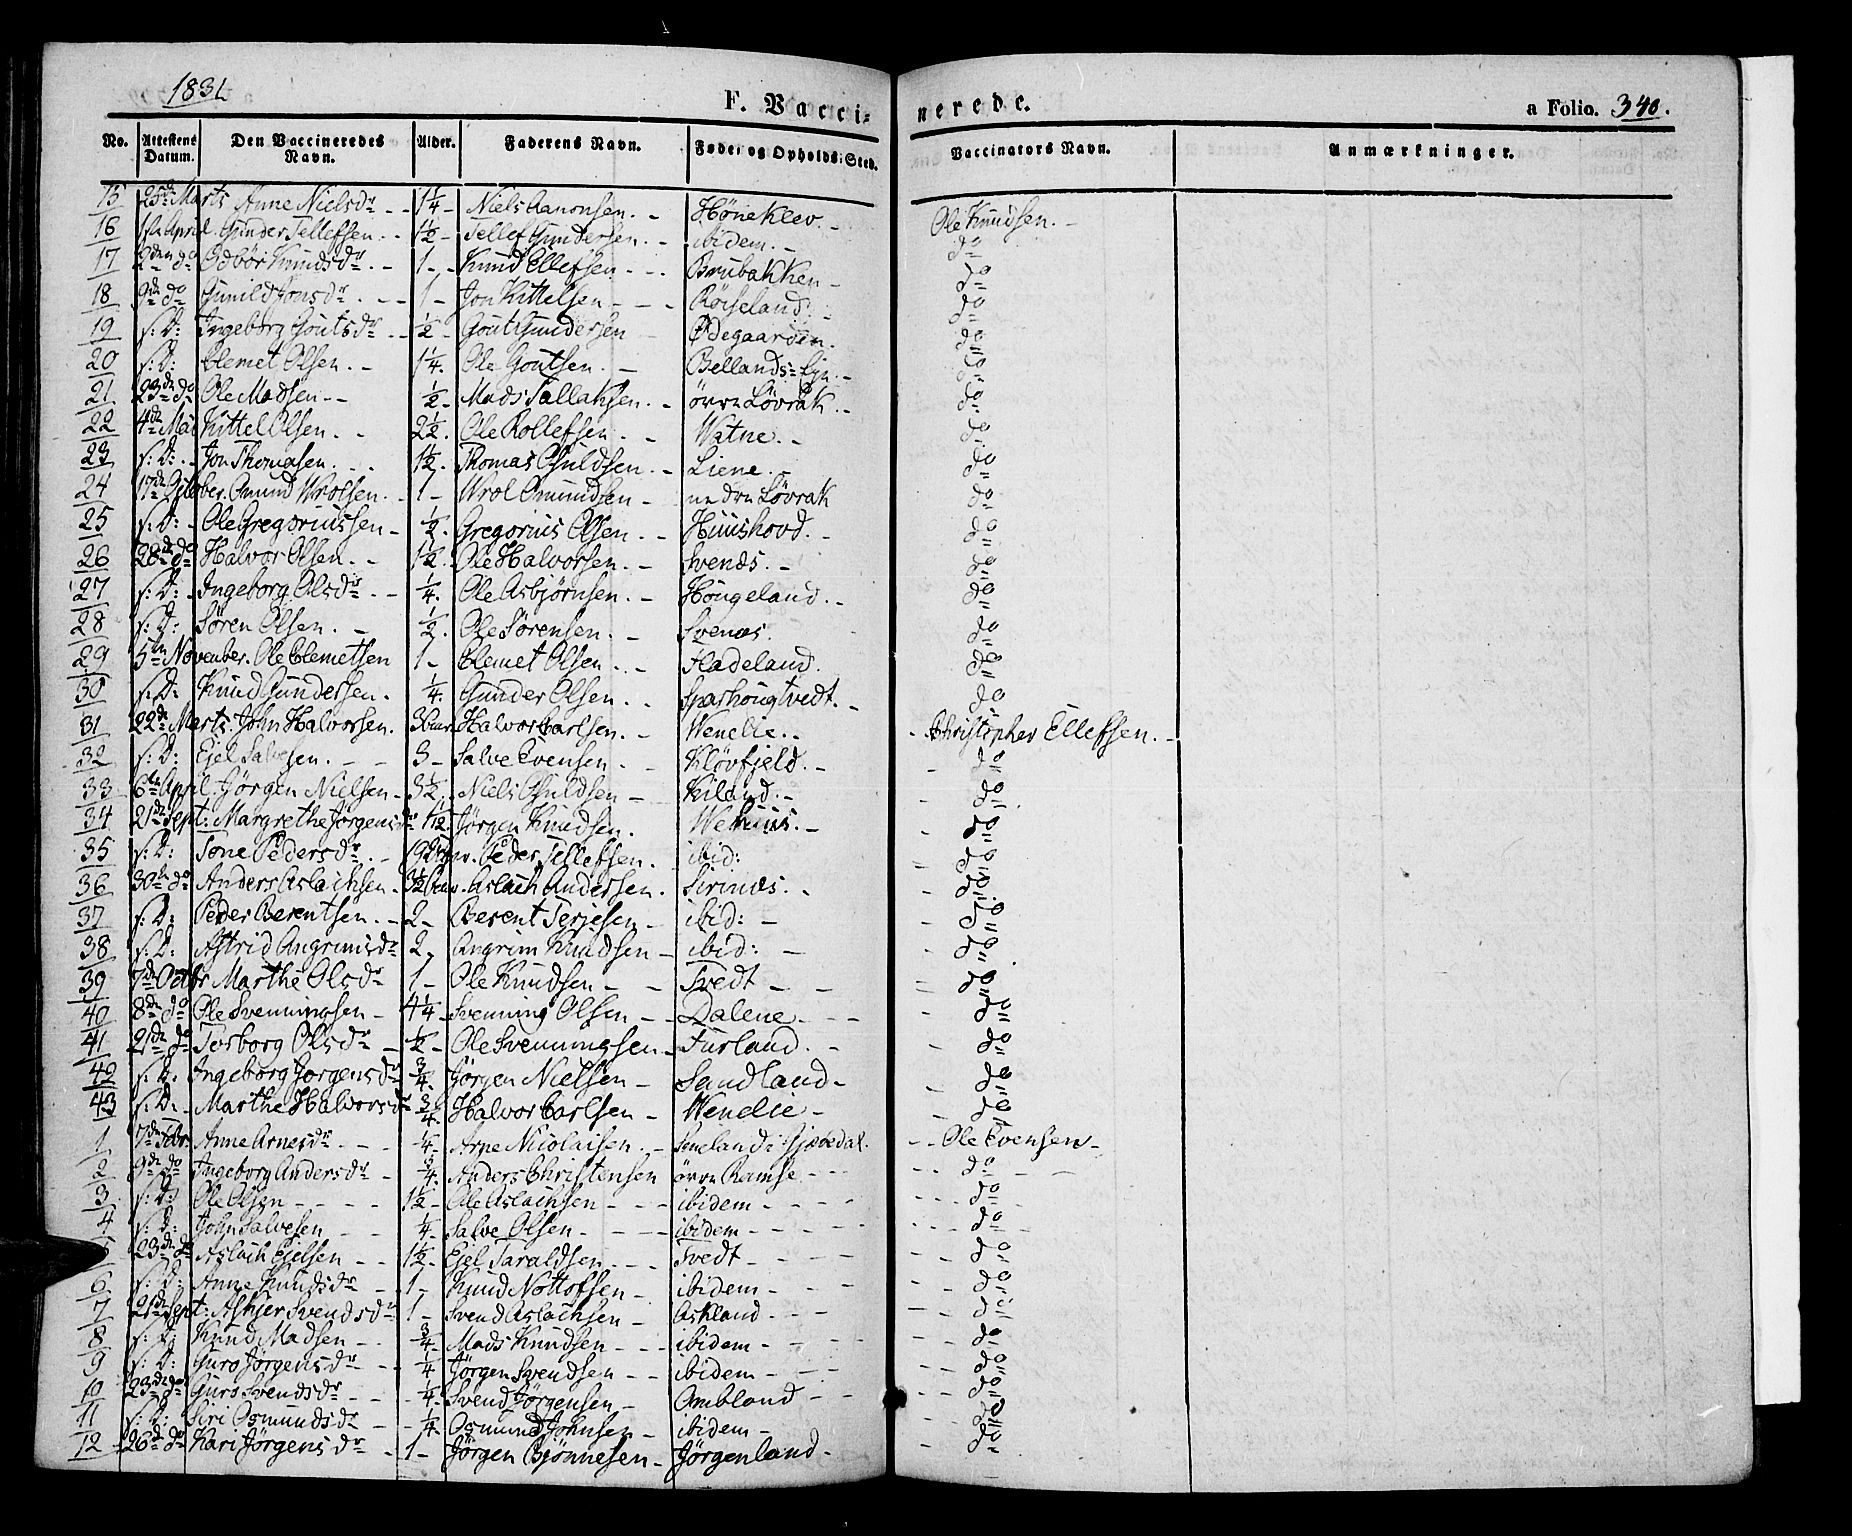 1831
F. Vacci- nerede. a Folio. 340.
No. Attestens Datum. Den Vaccineredes Navn. Alder. Faderens Navn. Føde- og Opholds-Sted. Vaccinators Navn. Anmærkninger.
15 25de Marts Anne Nielsdr - - 1 1/4 - Niels Aanonsen. - Høneklev. - Ole Knudsen. -
16 1ste April. Gunder Tellefsen. - 1 1/2 - Tellef Gundersen. - ibidem. - do
17 2den do Odbör Knudsdr. - 1 - Knud Ellefsen - - - Brubakken - do
18 9de do Gunild Jonsdr. - - 1 - Jon Kittelsen - - - Röiseland. - do
19 s: D: Ingeborg Goutsdr - - 1/2 - Gout Gundersen Ødegaarden. do
20 s: D: Clemet Olsen. - 1 1/4. Ole Goutsen. - Bellands- - do
21 23de do Ole Madsen - - 1/2 - Mads Tallaksen. - övre Lövrak. - do
22 4de Mai Kittel Olsen. - 2 1/2. Ole Rollefsen. - Watne. - do
23 s: D: - Jon Thomasen. - - 1 1/2. Thomas Osuldsen. - Liene. - do
24 17de October. Omund Wrolsen. - 1 - Wrol Omundsen - nedre Lövrak do
25 s: D: - Ole Gregoriussen - 1/2. Gregorius Olsen. - Huushovd. - do
26 28de do Halvor Olsen. - 1 1/2. Ole Halvorsen. - Svenås. - do
27 s: D: - Ingeborg Olsdr. - 1/4. Ole Asbjørnsen. - Höugeland. - do
28 s: D: Sören Olsen. - 1/2. Ole Sørensen. - Svenæs. do
29 5te November. Ole Clemetsen 1 - Clemet Olsen. - Fladeland. do
30 s: D: Knud Gundersen. 1/4. Gunder Olsen. - Sparhougtvedt. - do
31 22de Marts. John Halvorsen. 3 Halvor Carlsen. - Wenelie. - - Christopher Ellefsen. -
32 s: D: Ejel Salvesen. - - 3 - Salve Evensen. - Klövfjeld. - - do
33 6te April. Jörgen Nielsen - 3 1/2. Niels Osuldsen - Kiland. - - do
34 21de Sept: Margrethe Jörgensdr 1/12. Jörgen Knudsen. Wehuus. - - do
35 s: D: Tone Pedersdr. - 19 Peder Tellefsen. ibid: - do
36 30te do Anders Aslachsen. 3 1/2 Aslach Andersen. Sirinæs. - - do
37 s: D: Peder Berentsen. - 2 - Berent Terjesen - ibid: - - do
38 s: D: Astrid Angrimsdr 2 - Angrim Knudsen - ibid: - - do
39 7de Octbr Marthe Olsdr 1 - Ole Knudsen - - Tvedt - - = do
40 8de do Ole Svenningsen - 4 1/4 - Svenning Olsen - - Dalene - - - - do
41 21de do Torborg Olsdr - 1/2 - Ole Svenningsen - Furland. - - do
42 s: D: Ingeborg Jorgensdr 3/4. Jörgen Nielsen - Sandland - - do
43 s: D: - Marthe Halvorsdr 3/4 Halvor Carlsen - Wenelie - - do
1 7de Anne Arnesdr - - 1/4 - Arne Nicolaisen. - Smeland i Gjövedal. - - Ole Evensen -
2 9de do Ingeborg Andersdr - 3/4. Anders Christensen övre Ramse - - - - do
3 s: D: Ole Olsen - - - - 1 1/2 - Ole Aslachsen - - - ibidem - - - - - do
4 s: D: John Salvesen - - 1/4 - Salve Olsen - - - - ibidem - - - - - do
5 23de do Aslach Ejelsen - - 1 1/2 - Ejel Taraldsen - - - Tvedt - - - - - do
6 s: D: Anne Knudsdr - - 1 - Knud Nottofsen - ibidem - - - - do
7 21de Sept: Asbjer Svendsdr 1 - Svend Aslachsen - Askland - - - - do
8 s: D: Knud Madsen - - 3/4 - Mads Knudsen - - - ibidem - - - - do
9 s: D: Guro Jörgensdr - - 1/4 Jörgen Svendsen - - ibidem - - - - do
10 23de do Guro Svendsdr - - 1/4 - Svend Jörgensen - Ombland - - - - do
11 s: D: Siri Osmundsdr - - 1/4 - Osmund Johnsen - ibidem - - - do
12 26de do Kari Jörgensdr - 1 - Jörgen Bjönnesen - Jörgenland - - do